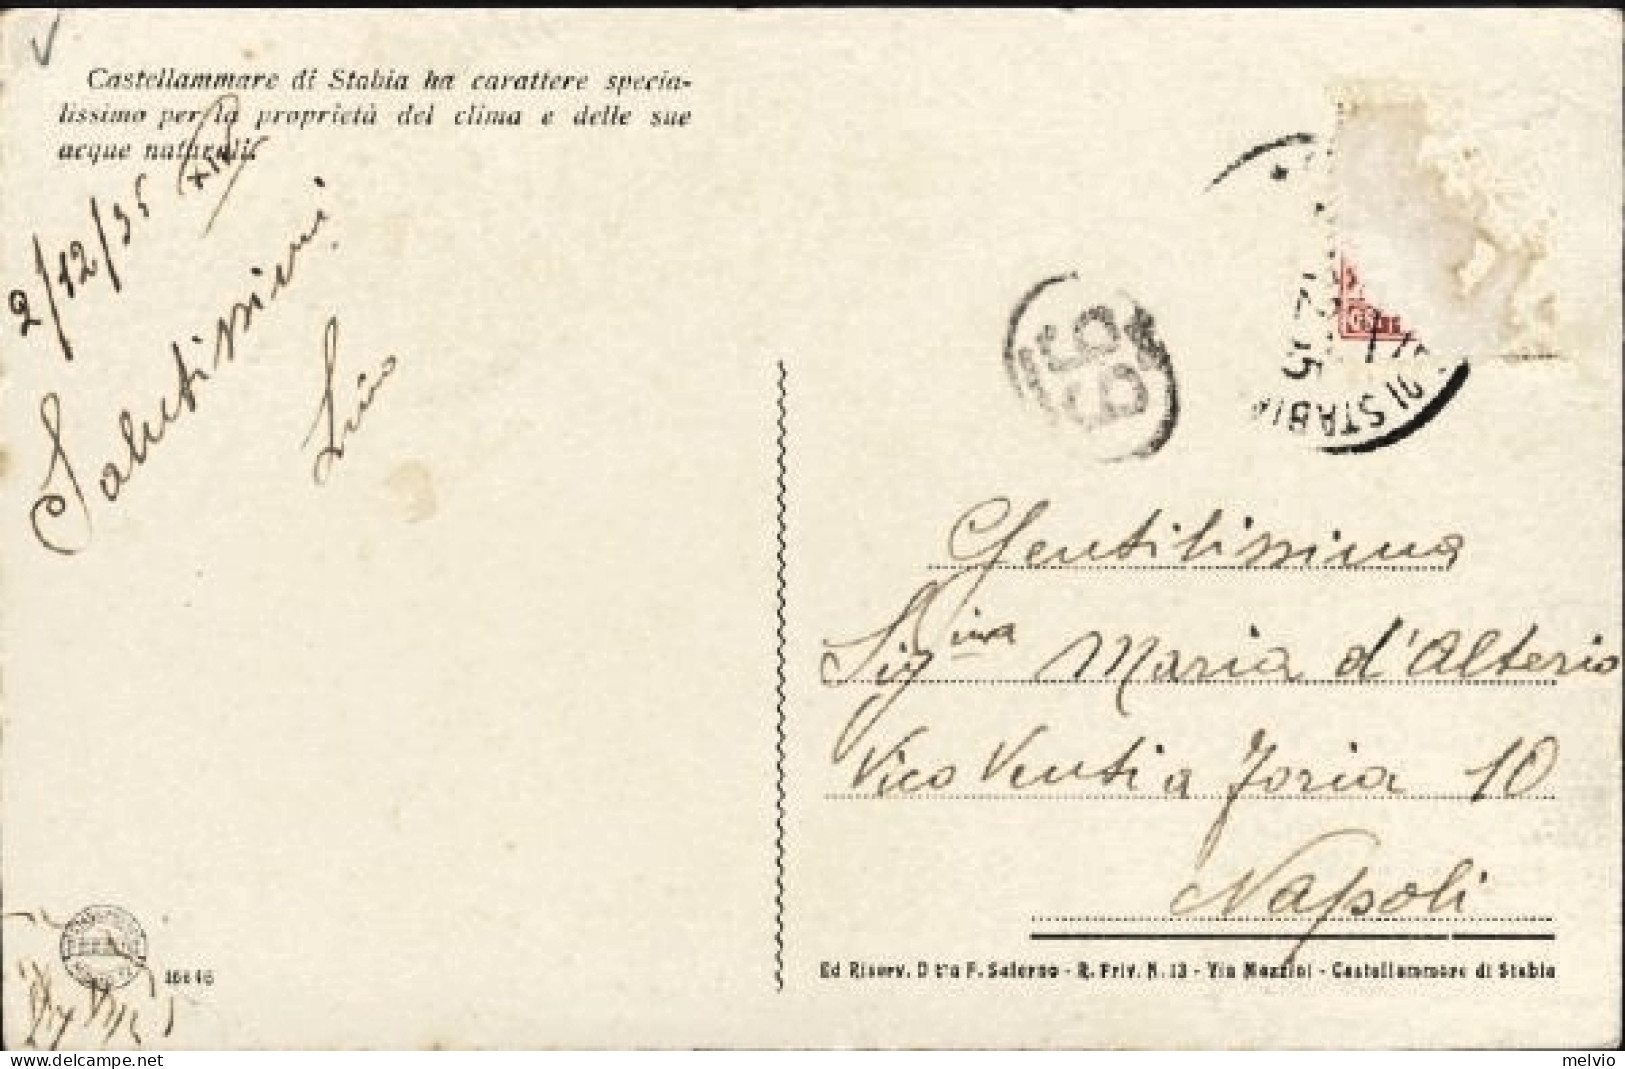 Castellammare di Stabia ha carattere specia-
lissimo per la proprietà del clima e delle sue
acque naturali.
2/12/35 XIV
Salutissimi
99
DI STABIA
12 35
CENT
Gentilissima
Sig.ina Maria d'Alterio
Vico Venti a Foria 10
Napoli
16646
Ed Riserv. Dtta F. Salerno - R. Priv. N. 13 - Via Mazzini - Castellammare di Stabia
melvio
delcampe.net